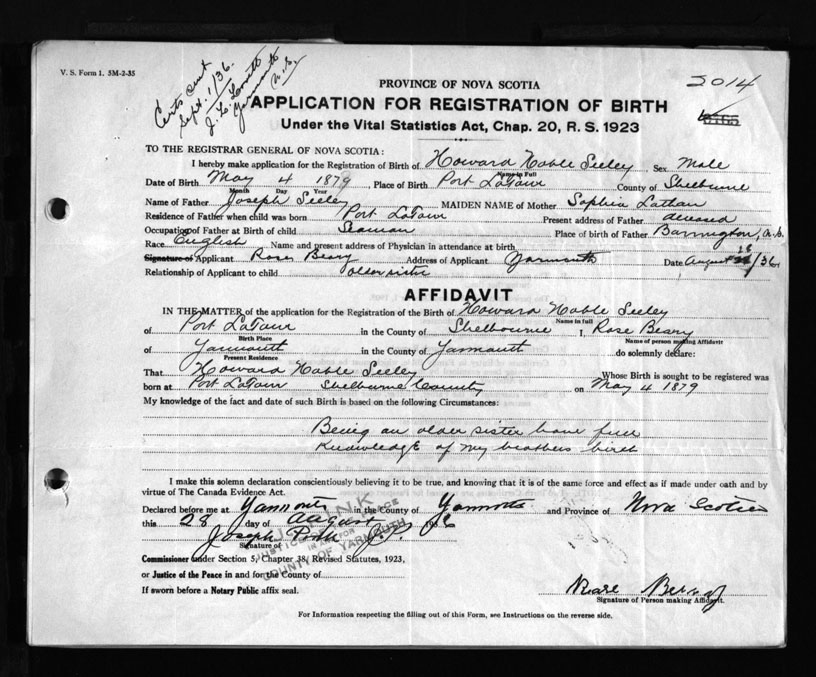 V. S. Form 1. 5M-2-35
Certs sent
Sept. 1/36.
J. L. Lovitt
Yarmouth
N.S.
2014
PROVINCE OF NOVA SCOTIA
APPLICATION FOR REGISTRATION OF BIRTH
Under the Vital Statistics Act, Chap. 20, R. S. 1923
TO THE REGISTRAR GENERAL OF NOVA SCOTIA:
I hereby make application for the Registration of Birth of Howard Noble Seeley Sex Male
Name in Full
Date of Birth May 4 1879 Place of Birth Port LaTour County of Shelburne
Month Day Year
Name of Father Joseph Seeley MAIDEN NAME of Mother Sophia
Residence of Father when child was born Port LaTour Present address of Father deceased
Occupation of Father at Birth of child Seaman Place of birth of Father Barrington, N.S.
Race English Name and present address of Physician in attendance at birth
Signature of Applicant Rose Beary Address of Applicant Yarmouth Date August 28/36
Relationship of Applicant to child older sister
AFFIDAVIT
IN THE MATTER of the application for the Registration of the Birth of Howard Noble Seeley
Name in full
of Port LaTour in the County of Shelbourne I, Rose Beary
Birth Place Name of person making Affidavit
of Yarmouth in the County of Yarmouth do solemnly declare:
Present Residence
That Howard Noble Seeley Whose Birth is sought to be registered was
born at Port LaTour Shelburne County on May 4 1879
My knowledge of the fact and date of such Birth is based on the following Circumstances:
Being an older sister have full
Knowledge of my brothers birth
I make this solemn declaration conscientiously believing it to be true, and knowing that it is of the same force and effect as if made under oath and by
virtue of The Canada Evidence Act.
Declared before me at Yarmouth in the County of Yarmouth and Province of Nova Scotia
this 28 day of August 1936
Joseph J.P.
Signature of
JUSTICE PEACE
IN AND FOR
COUNTY OF YARMOUTH
Commissioner under Section 5, Chapter 38, Revised Statutes, 1923,
or Justice of the Peace in and for the County of
If sworn before a Notary Public affix seal.
Rose Beary
Signature of Person making Affidavit.
For Information respecting the filling out of this Form, see Instructions on the reverse side.